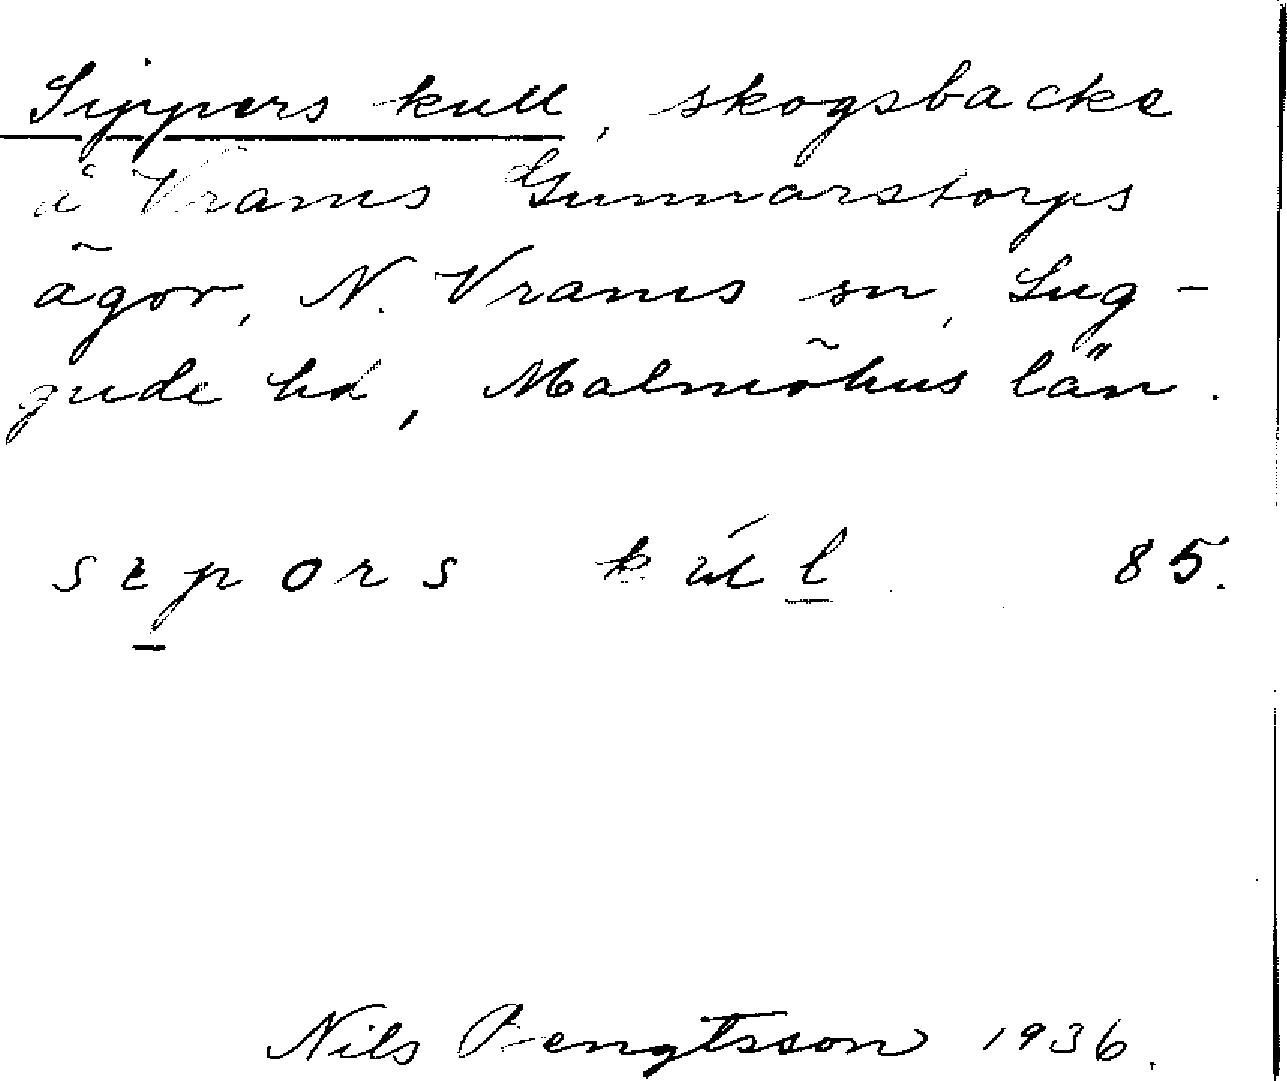 Sippers kull, skogsbacke
å Vrams Gunnarstorps
ägor, N. Vrams sn, Lug-
gude hd, Malmöhus län.
sepors kúll 85.
Nils Bengtsson 1936.